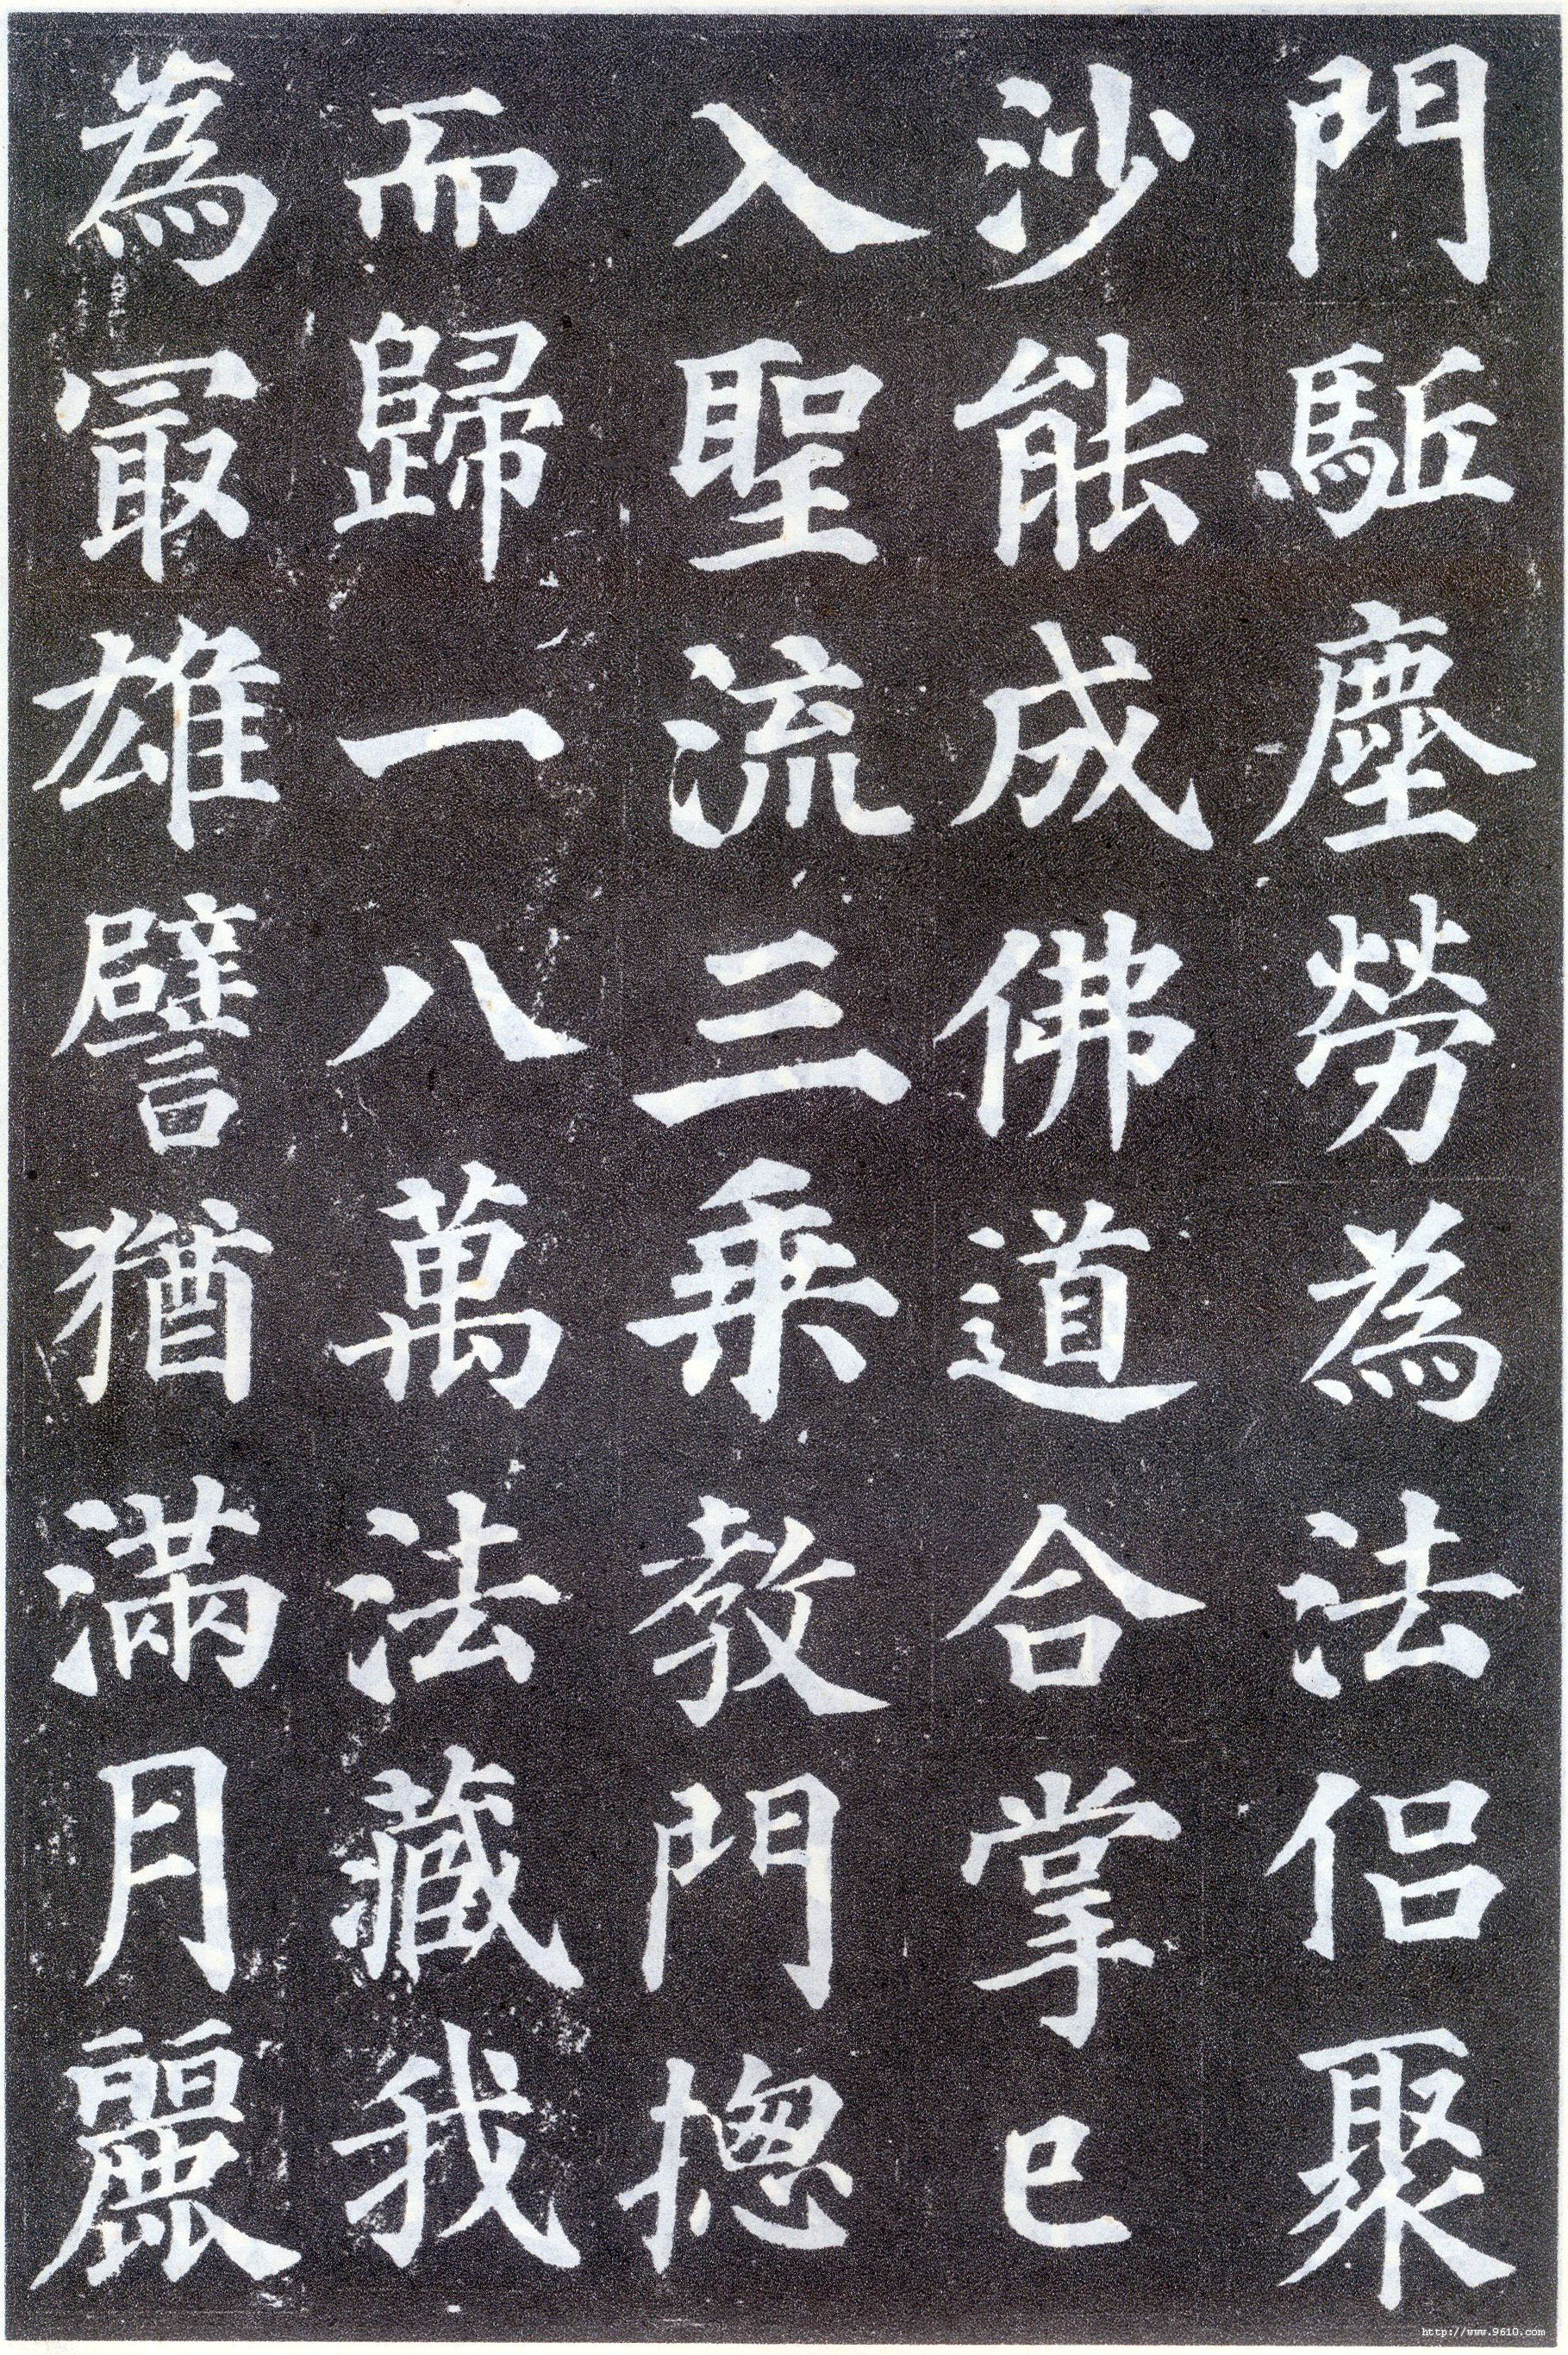 門駈塵勞為法侶聚
沙能成佛道合掌已
入聖流三乗教門揔
而歸一八萬法藏我
為冣雄譬猶滿月麗
http://www.9610.com